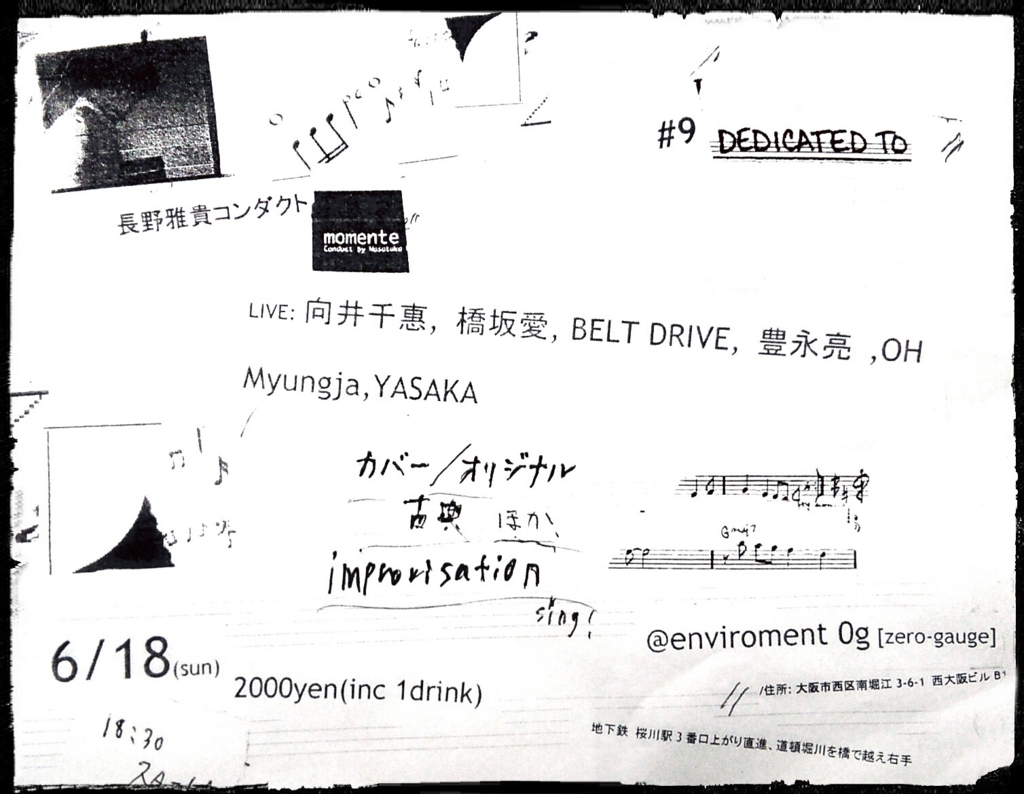 #9 DEDICATED TO
長野雅貴コンダクト
momente
Conduct by Masataka
LIVE: 向井千惠, 橋坂愛, BELT DRIVE, 豊永亮 ,OH
Myungja,YASAKA
カバー/オリジナル
古典 ほか
improvisation
sing!
Gmaj7
6/18(sun)
18:30
2000yen(inc 1drink)
@enviroment 0g [zero-gauge]
/住所: 大阪市西区南堀江 3-6-1 西大阪ビル B1
地下鉄 桜川駅 3 番口上がり直進、道頓堀川を橋で越え右手